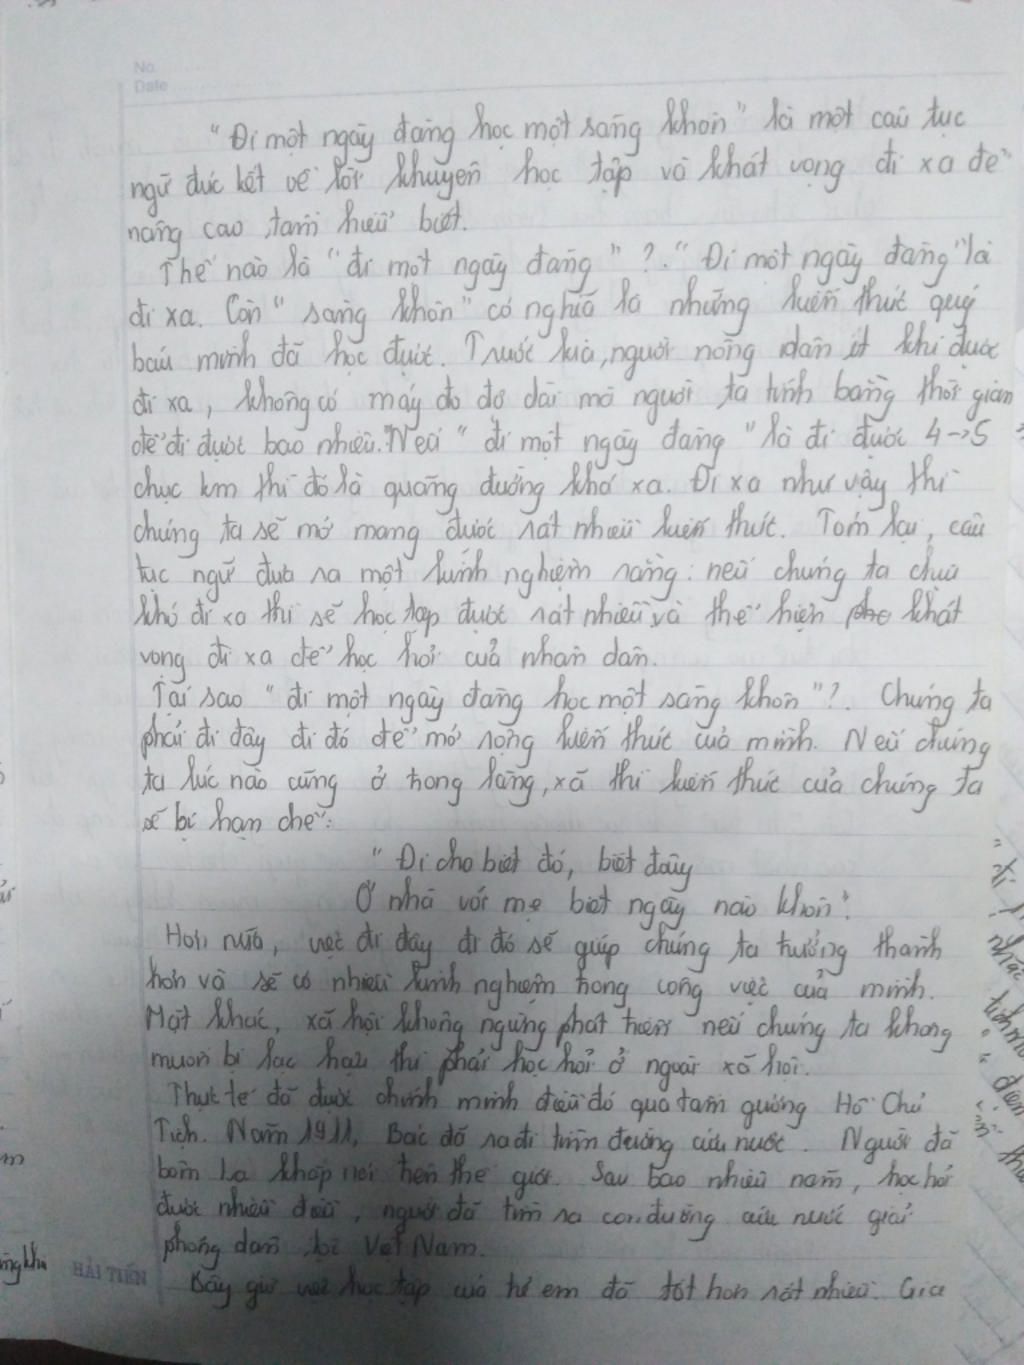 No.
Date
"Đi một ngày đàng học một sàng khôn" là một câu tục
ngữ đúc kết về lời khuyên học tập và khát vọng đi xa để
nâng cao tầm hiểu biết.
Thế nào là "đi một ngày đàng"?. "Đi một ngày đàng" là
đi xa. Còn "sàng khôn" có nghĩa là những kiến thức quý
báu mình đã học được. Trước kia, người nông dân ít khi được
đi xa, không có máy đo độ dài mà người ta tính bằng thời gian
để đi được bao nhiêu. Nếu "đi một ngày đàng" là đi được 4→5
chục km thì đó là quãng đường khá xa. Đi xa như vậy thì
chúng ta sẽ mở mang được rất nhiều kiến thức. Tóm lại, câu
tục ngữ đưa ra một kinh nghiệm rằng: nếu chúng ta chịu
khó đi xa thì sẽ học tập được rất nhiều và thể hiện khát
vọng đi xa để học hỏi của nhân dân.
Tại sao "đi một ngày đàng học một sàng khôn"?. Chúng ta
phải đi đây đi đó để mở rộng kiến thức của mình. Nếu chúng
ta lúc nào cũng ở trong làng, xã thì kiến thức của chúng ta
sẽ bị hạn chế:
"Đi cho biết đó, biết đây
Ở nhà với mẹ biết ngày nào khôn".
Hơn nữa, việc đi đây đi đó sẽ giúp chúng ta trưởng thành
hơn và sẽ có nhiều kinh nghiệm trong công việc của mình.
Mặt khác, xã hội không ngừng phát triển nếu chúng ta không
muốn bị lạc hậu thì phải học hỏi ở ngoài xã hội.
Thực tế đã được chứng minh điều đó qua tấm gương Hồ Chủ
Tịch. Năm 1911, Bác đã ra đi tìm đường cứu nước. Người đã
bôn ba khắp nơi trên thế giới. Sau bao nhiêu năm, học hỏi
được nhiều điều, người đã tìm ra con đường cứu nước giải
phóng dân tộc Việt Nam.
Bây giờ việc học tập của trẻ em đã tốt hơn rất nhiều. Gia
HẢI TIẾN